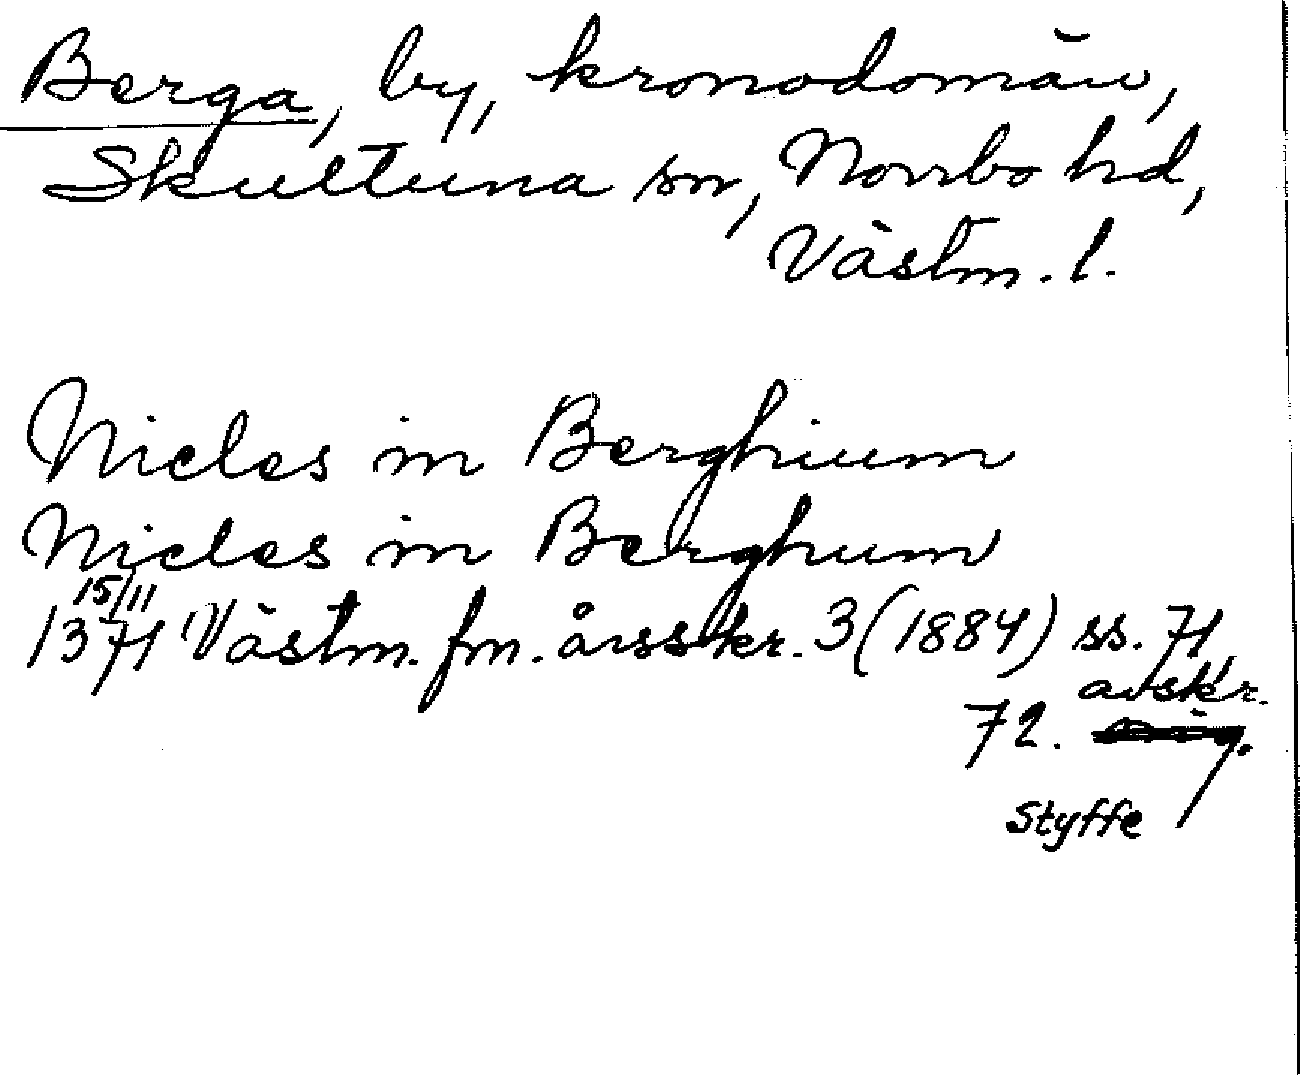 Berga, by, kronodomän,
Skultuna sn, Norrbo hd,
Västm. l.
Nicles in Berghium
Nicles in Berghum
15/11
1371 Västm. fm. årsskr. 3 (1884) ss. 71,
avskr.
72.
Styffe